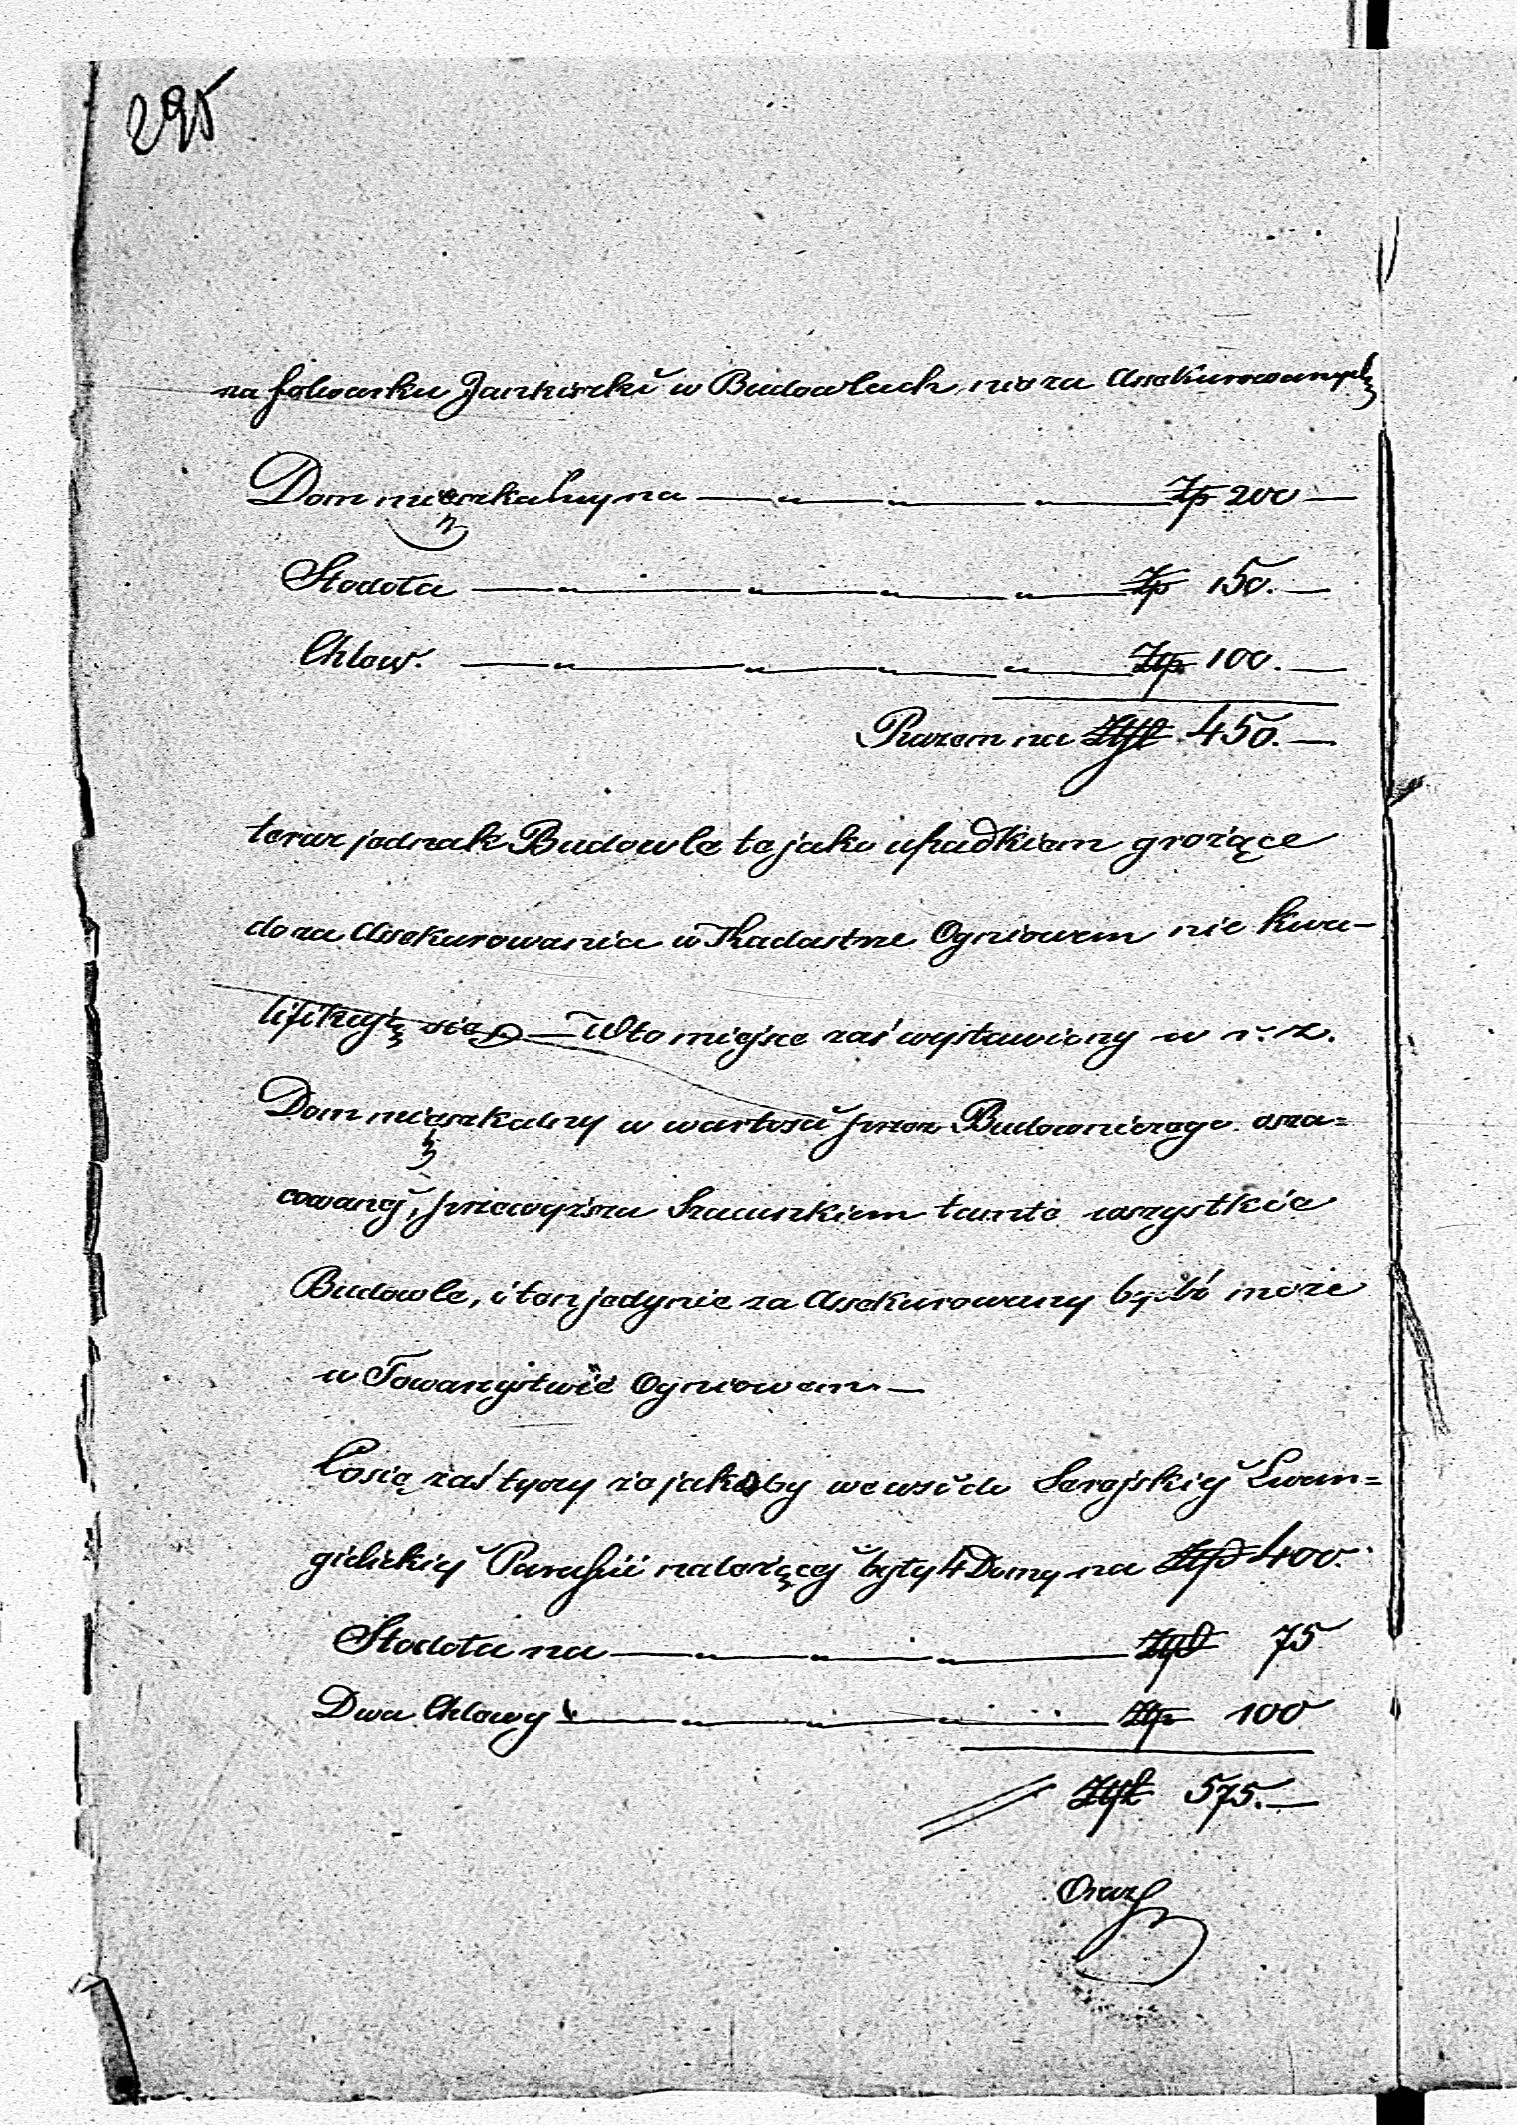 295
na folwarku Jankiszki w Budowlach nieza Assekurowanych
Dom mieszkalny na — „ — „ — „ — Złp 200 —
Stodoła — „ — „ — „ — „ — Złp 150. —
Chlow. — „ — „ — „ — „ — Złp 100. —
Razem na Złp 450. —
teraz jednak Budowle te jako upadkiem grożące
do za Assekurowania w Kadastrze Ogniowem nie kwa-
lifikują się — W to miejsce zaś wystawiony w r. z.
Dom mieszkalny w wartosci przez Budowniczego osza=
cowanej, przewyisza Szacunkiem tamte wszystkie
Budowle, i ten jedynie za Assekurowany bydź może
w Towarzystwie Ogniowem. —
Cosię zaś tyczy że jakoby we wsi do Serejskiej Ewan=
gielickiej Parafii należącej były 4 Domy na Złp 400.
Stodoła na — „ — „ — „ — Złp 75
Dwa Chlowy — „ — „ — „ — Złp 100
Złp 575. —
Oraz